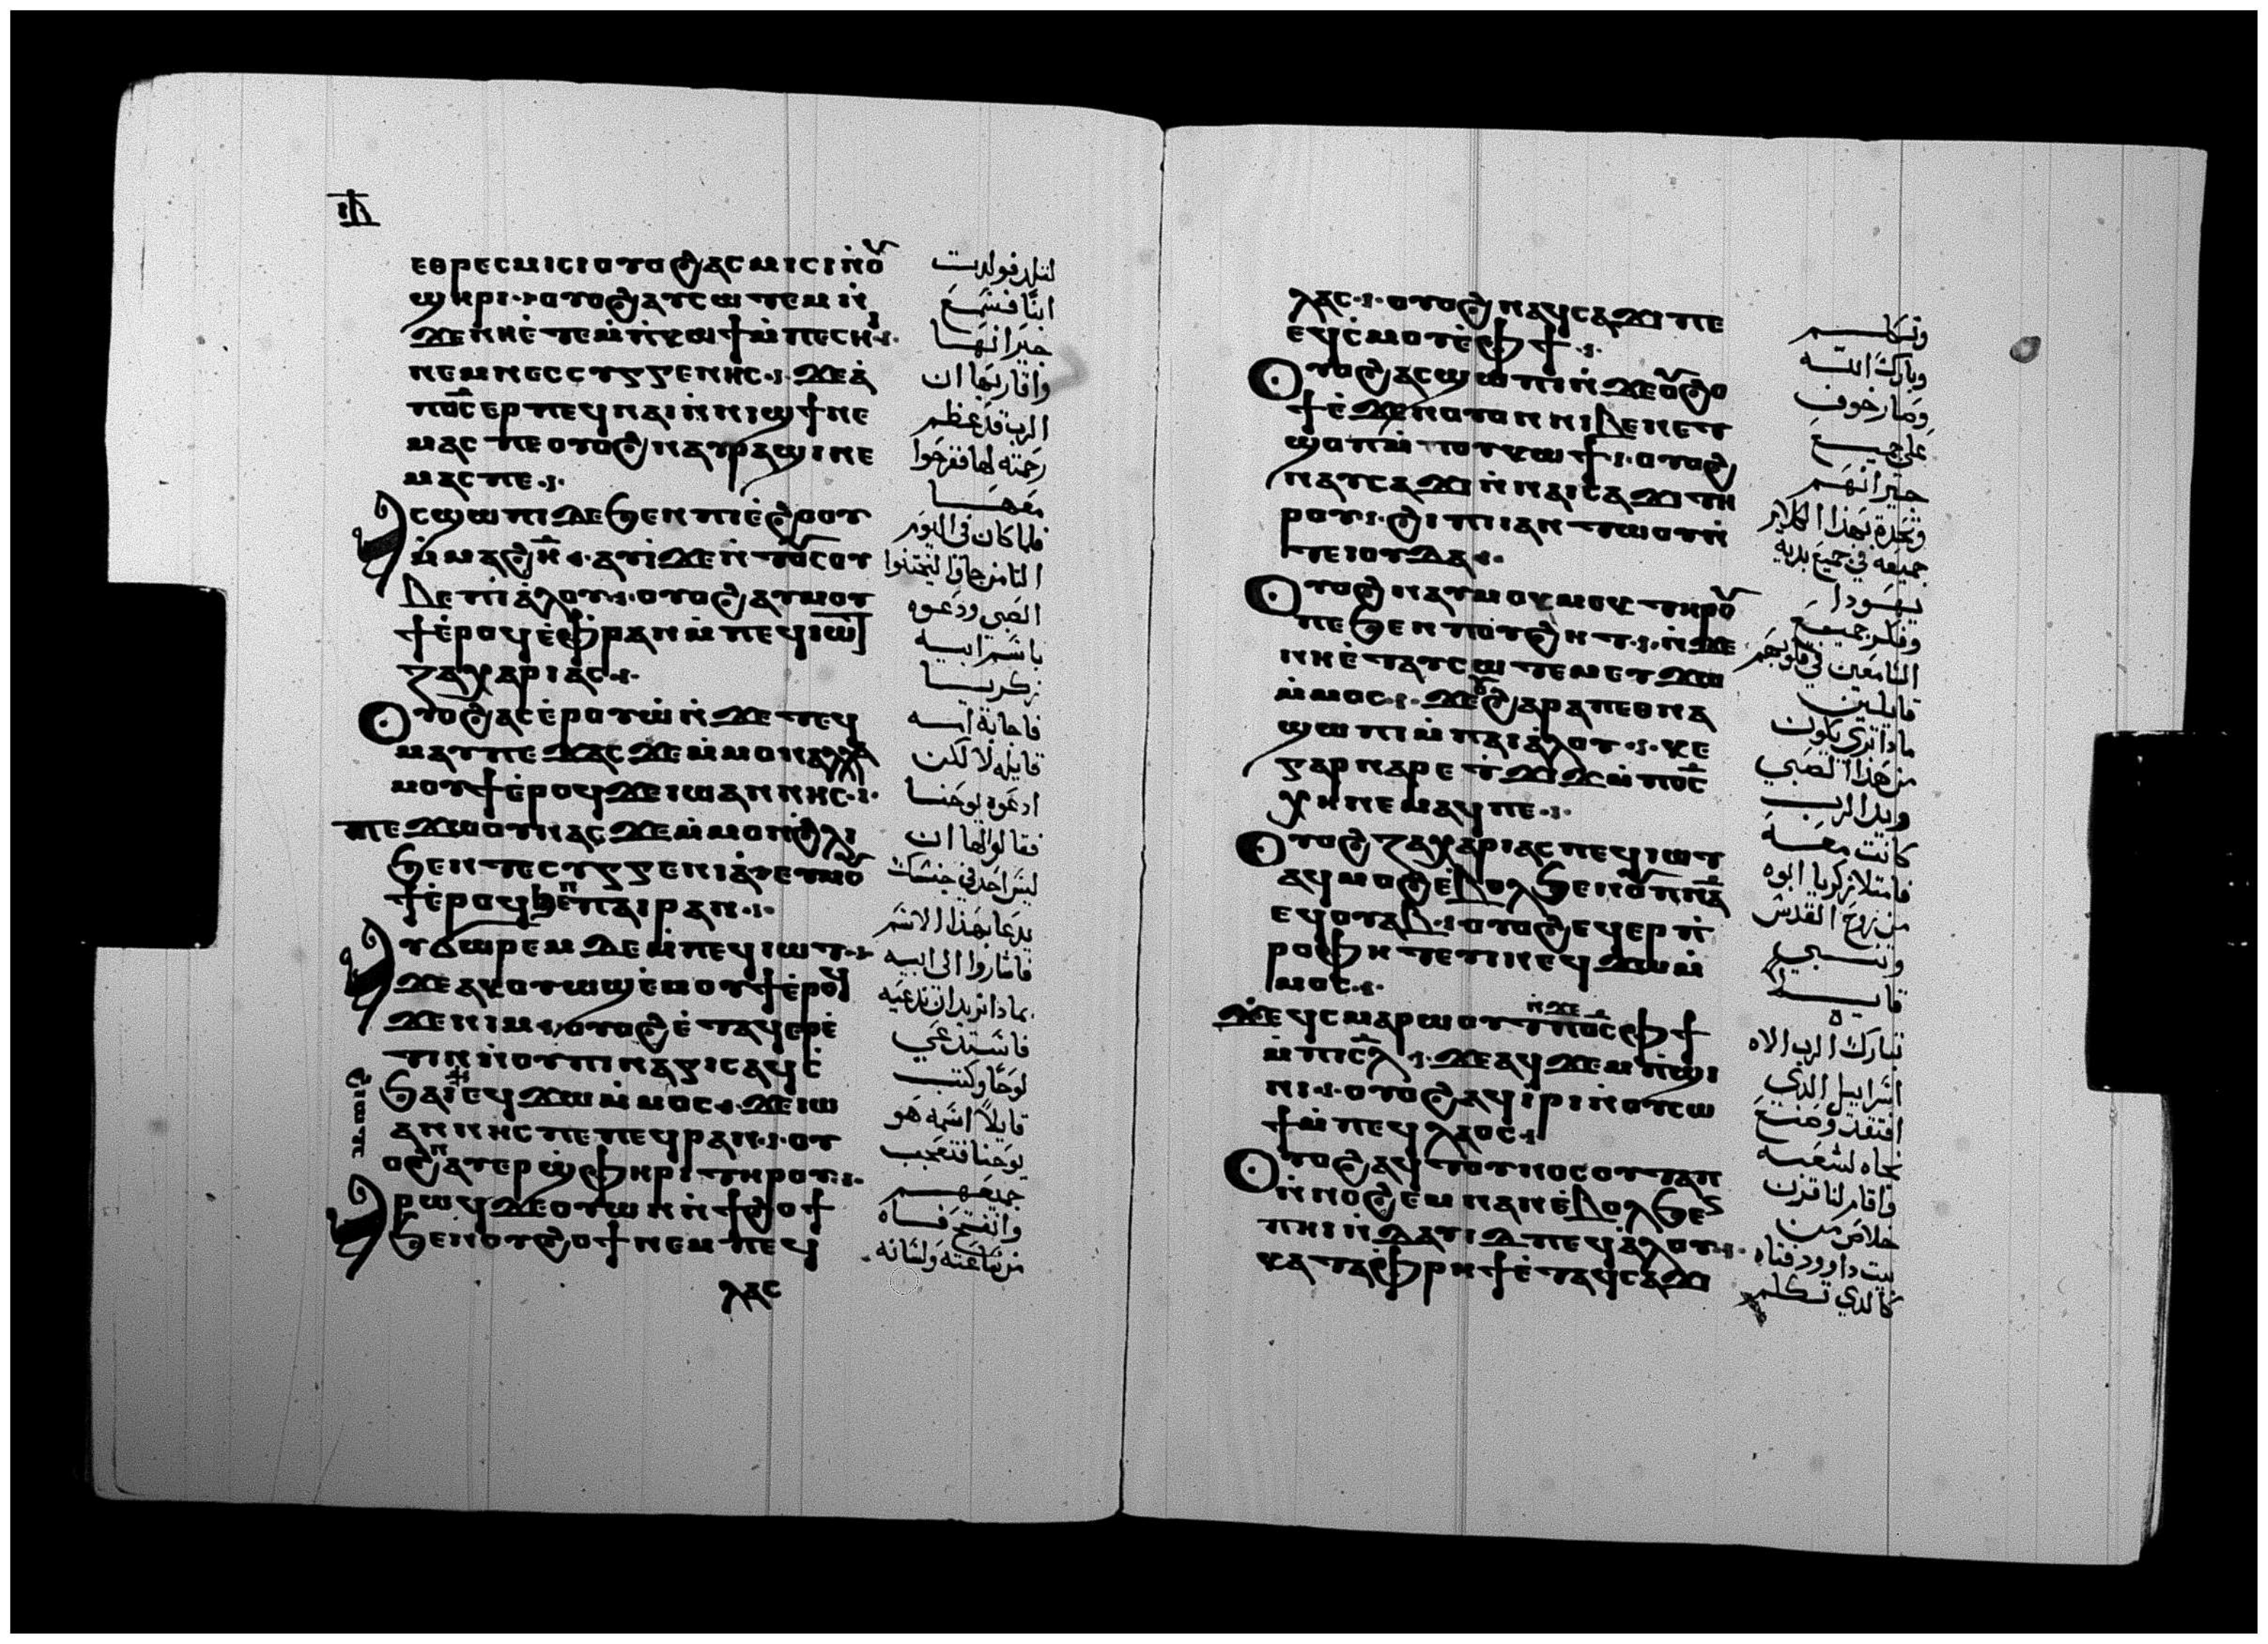 ⲓⲃ
ⲉⲑⲣⲉⲥⲙⲓⲥⲓ ⲟⲩⲟϩ ⲁⲥⲙⲓⲥⲓ ⲛ̇ⲟⲩ
ϣⲏⲣⲓ · ⲟⲩⲟϩ ⲁⲩⲥⲱⲧⲉⲙ ⲛ̇
ϫⲉ ⲛⲏⲉ̇ⲧⲉⲙ̇ⲡ̇ⲕⲱϯ ⲙ̇ⲡⲉⲥⲏⲓ
ⲛⲉⲙ ⲛⲉⲥⲥⲩⲅⲅⲉⲛⲏⲥ · ϫⲉ ⲁ̇
ⲡⲟ̅ⲥ̅ ⲉⲣ ⲡⲉϥⲛⲁⲓ ⲛ̇ⲛⲓϣϯ ⲛⲉ
ⲙⲁⲥ ⲡⲉ ⲟⲩⲟϩ ⲛⲁⲩⲣⲁϣⲓ ⲛⲉ
ⲙⲁⲥ ⲡⲉ ·
Ⲁⲥϣⲱⲡⲓ ⲇⲉ ϧⲉⲛ ⲡⲓⲉ̇ϩⲟⲟⲩ
ⲙ̇ⲙⲁϩ ⲏ̅ · ⲁⲩⲓ̇ ϫⲉ ⲛ̇ⲧⲟⲩⲥⲟⲩ
ⲃⲉ ⲡⲓⲁ̇ⲗⲟⲩ · ⲟⲩⲟϩ ⲁⲩⲙⲟⲩ
ϯ ⲉ̇ⲣⲟϥ ⲉ̇ⲫⲣⲁⲛ ⲙ̇ⲡⲉϥⲓⲱⲧ
ⲍⲁⲭⲁⲣⲓⲁⲥ ·
Ⲟⲩⲟϩ ⲁⲥⲉ̇ⲣⲟⲩⲱ̇ ⲛ̇ϫⲉ ⲧⲉϥ
ⲙⲁⲩ ⲡⲉϫⲁⲥ ϫⲉ ⲙ̇ⲙⲟⲛ ⲁⲗⲗⲁ
ⲙⲟⲩϯ ⲉ̇ⲣⲟϥ ϫⲉ ⲓⲱⲁⲛⲛⲏⲥ ·
ⲡⲉϫⲱⲟⲩ ⲛⲁⲥ ϫⲉ ⲙ̇ⲙⲟⲛ ϩ̇ⲗⲓ
ϧⲉⲛ ⲧⲉⲥⲩⲅⲅⲉⲛⲓⲁ̇ ⲉⲩⲙⲟⲩ
ϯ ⲉ̇ⲣⲟϥ ϧⲉⲛ ⲡⲁⲓⲣⲁⲛ ·
Ⲁⲩϭⲱⲣⲉⲙ ⲇⲉ ⲙ̇ⲡⲉϥⲓⲱⲧ ·
ϫⲉ ⲁⲕⲟⲩⲱϣ ⲉ̇ⲙⲟⲩϯ ⲉ̇ⲣⲟϥ
ϫⲉ ⲛⲓⲙ · ⲟⲩⲟϩ ⲉ̇ⲧⲁϥⲉⲣⲉ̇
ⲧⲓⲛ ⲛ̇ⲟⲩⲡⲓⲛⲁⲕⲓⲥ ⲁϥⲥ̇
ϧⲁⲓ ⲉϥϫⲱ ⲙ̇ⲙⲟⲥ · ϫⲉ ⲓⲱ
ⲁⲛⲛⲏⲥ ⲡⲉ ⲡⲉϥⲣⲁⲛ · ⲟⲩ
ⲟϩ ⲁⲩⲉⲣϣ̇ⲫⲏⲣⲓ ⲧⲏⲣⲟⲩ ·
Ⲁⲣⲱϥ ⲇⲉ ⲟⲩⲱⲛ ⲛ̇ϯϩⲟϯ
ϧⲉⲛ ⲟⲩϩⲟϯ ⲛⲉⲙ ⲡⲉϥ
ⲗⲁⲥ
لتلد فولدت
ابنًا فسمع
جيرانها
واقاربها ان
الرب قد عظم
رحمته لها ففرحوا
معها
فلما كان في اليوم
الثامن جاوا ليختنوا
الصبي ودعوه
باسم ابيه
زكريا
فاجابة امه
قايله لا لكن
ادعوه يوحنا
فقالوا لها ان
ليس احد في جنسك
يدعا بهذا الاسم
فاشاروا الى ابيه
بماذا تريد ان تدعيه
فاستدعي
لوحًا وكتب
قايلاً اسمه هو
يوحنا فتعجب
جميعهم
وانفتح فاه
من ساعته ولسانه
ⲗⲁⲥ · ⲟⲩⲟϩ ⲛⲁϥⲥⲁϫⲓ ⲡⲉ
ⲉϥⲥ̇ⲙⲟⲩ ⲉ̇ⲫϯ ·
Ⲟⲩⲟϩ ⲁⲥϣⲱⲡⲓ ⲛ̇ϫⲉ ⲟⲩϩⲟ
ϯ ⲉ̇ϫⲉⲛ ⲟⲩⲟⲛ ⲛⲓⲃⲉⲛ ⲉⲧ
ϣⲟⲡ ⲙ̇ⲡⲟⲩⲕⲱϯ · ⲟⲩⲟϩ
ⲛⲁⲩⲥⲁϫⲓ ⲛ̇ⲛⲁⲓⲥⲁϫⲓ ⲧⲏ
ⲣⲟⲩ · ϩⲓ ⲡⲓⲁⲛⲧⲱⲟⲩ ⲛ̇
ⲧⲉ ⲓⲟⲩⲇⲁ ·
Ⲟⲩⲟϩ ⲛⲁⲩⲙⲟⲕⲙⲉⲕ ⲧⲏⲣⲟⲩ
ⲡⲉ ϧⲉⲛ ⲡⲟⲩϩⲏⲧ · ⲛ̇ϫⲉ
ⲛⲏⲉ̇ⲧⲁⲩⲥⲱⲧⲉⲙ ⲉⲩϫⲱ
ⲙ̇ⲙⲟⲥ · ϫⲉ ⲟⲩ ϩⲁⲣⲁ ⲡⲉⲑⲛⲁ
ϣⲱⲡⲓ ⲙ̇ⲡⲁⲓⲁ̇ⲗⲟⲩ · ⲕⲉ
ⲅⲁⲣ ⲛⲁⲣⲉ ⲧ̇ϫⲓϫ ⲙ̇ⲡⲟ̅ⲥ̅
ⲭⲏ ⲛⲉⲙⲁϥ ⲡⲉ ·
Ⲟⲩⲟϩ ⲍⲁⲭⲁⲣⲓⲁⲥ ⲡⲉϥⲓⲱⲧ
ⲁϥⲙⲟϩ ⲉ̇ⲃⲟⲗ ϧⲉⲛ ⲟⲩⲡ̅ⲛ̅ⲁ̅
ⲉϥⲟⲩⲁⲃ · ⲟⲩⲟϩ ⲉϥⲉⲣⲡ̇
ⲣⲟⲫⲏⲧⲉⲩⲓⲛ ⲉϥϫⲱ ⲙ̇
ⲙⲟⲥ ·
ϫⲉ ϥⲥⲙⲁⲣⲱⲟⲩⲧ ⲛ̇ϫⲉ ⲡⲟ̅ⲥ̅ ⲫϯ
ⲙ̇ⲡⲓⲥ̅ⲗ̅ · ϫⲉ ⲁϥϫⲉⲙⲡ̇ϣⲓ
ⲛⲓ · ⲟⲩⲟϩ ⲁϥⲓ̇ⲣⲓ ⲛ̇ⲟⲩⲥⲱ
ϯ ⲙ̇ⲡⲉϥⲗⲁⲟⲥ ·
Ⲟⲩⲟϩ ⲁϥⲧⲟⲩⲛⲟⲥ ⲟⲩⲧⲁⲡ
ⲛ̇ⲛⲟϩⲉⲙ ⲛⲁⲛ ⲉ̇ⲃⲟⲗ ϧⲉⲛ
ⲡⲏⲓ ⲛ̇ⲇⲁⲩⲓⲇ ⲡⲉϥⲁ̇ⲗⲟⲩ ·
ⲕⲁⲧⲁ ⲫ̇ⲣⲏϯ ⲉ̇ⲧⲁϥⲥⲁϫⲓ
وتكلم
وبارك الله
وصار خوف
على جميع
جيرانهم
وتحدة بهذا الكلام
جميعه في جميع بريه
يهودا
وفكر جميع
السامعين في قلوبهم
قايلين
ماذا ترى يكون
من هذا الصبي
ويد الرب
كانت معه
فامتلا زكريا ابوه
من روح القدس
وتنبي
قايلا
تبارك الرب الاه
اسراييل الذي
افتقد وصنع
نجاه لشعبه
واقام لنا قرن
خلاص من
بيت داوود فتاه
كالذي تكلم